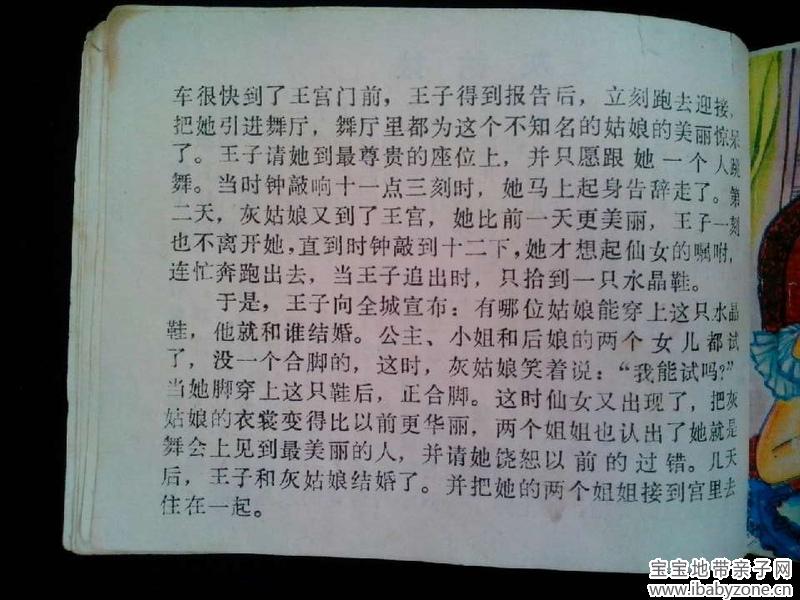 车很快到了王宫门前，王子得到报告后，立刻跑去迎接，
把她引进舞厅，舞厅里都为这个不知名的姑娘的美丽惊呆
了。王子请她到最尊贵的座位上，并只愿跟她一个人跳
舞。当时钟敲响十一点三刻时，她马上起身告辞走了。第
二天，灰姑娘又到了王宫，她比前一天更美丽，王子一刻
也不离开她，直到时钟敲到十二下，她才想起仙女的嘱咐，
连忙奔跑出去，当王子追出时，只拾到一只水晶鞋。
于是，王子向全城宣布：有哪位姑娘能穿上这只水晶
鞋，他就和谁结婚。公主、小姐和后娘的两个女儿都试
了，没一个合脚的，这时，灰姑娘笑着说：“我能试吗？”
当她脚穿上这只鞋后，正合脚。这时仙女又出现了，把灰
姑娘的衣裳变得比以前更华丽，两个姐姐也认出了她就是
舞会上见到最美丽的人，并请她饶恕以前的过错。几天
后，王子和灰姑娘结婚了。并把她的两个姐姐接到宫里去
住在一起。
宝宝地带亲子网
www.ibabyzone.cn